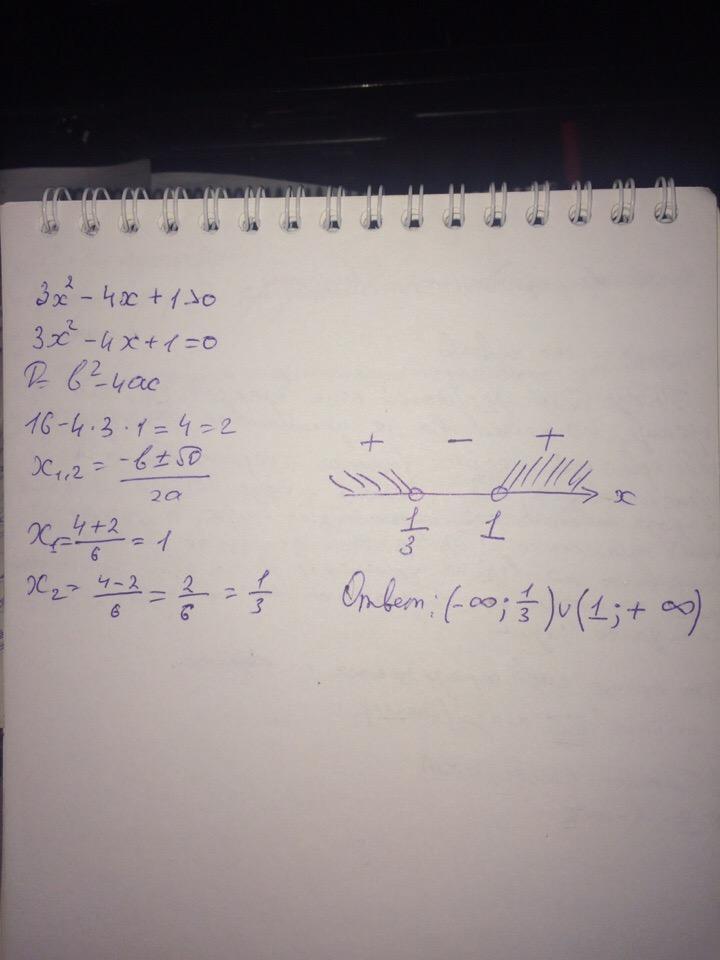 3x² - 4x + 1 > 0
3x² - 4x + 1 = 0
D = b² - 4ac
16 - 4 · 3 · 1 = 4 = 2
x₁,₂ = (-b ± √D)/2a
x₁ = (4+2)/6 = 1
x₂ = (4-2)/6 = 2/6 = 1/3
+ - +
1/3 1 x
Ответ: (-∞; 1/3) ∪ (1; + ∞)